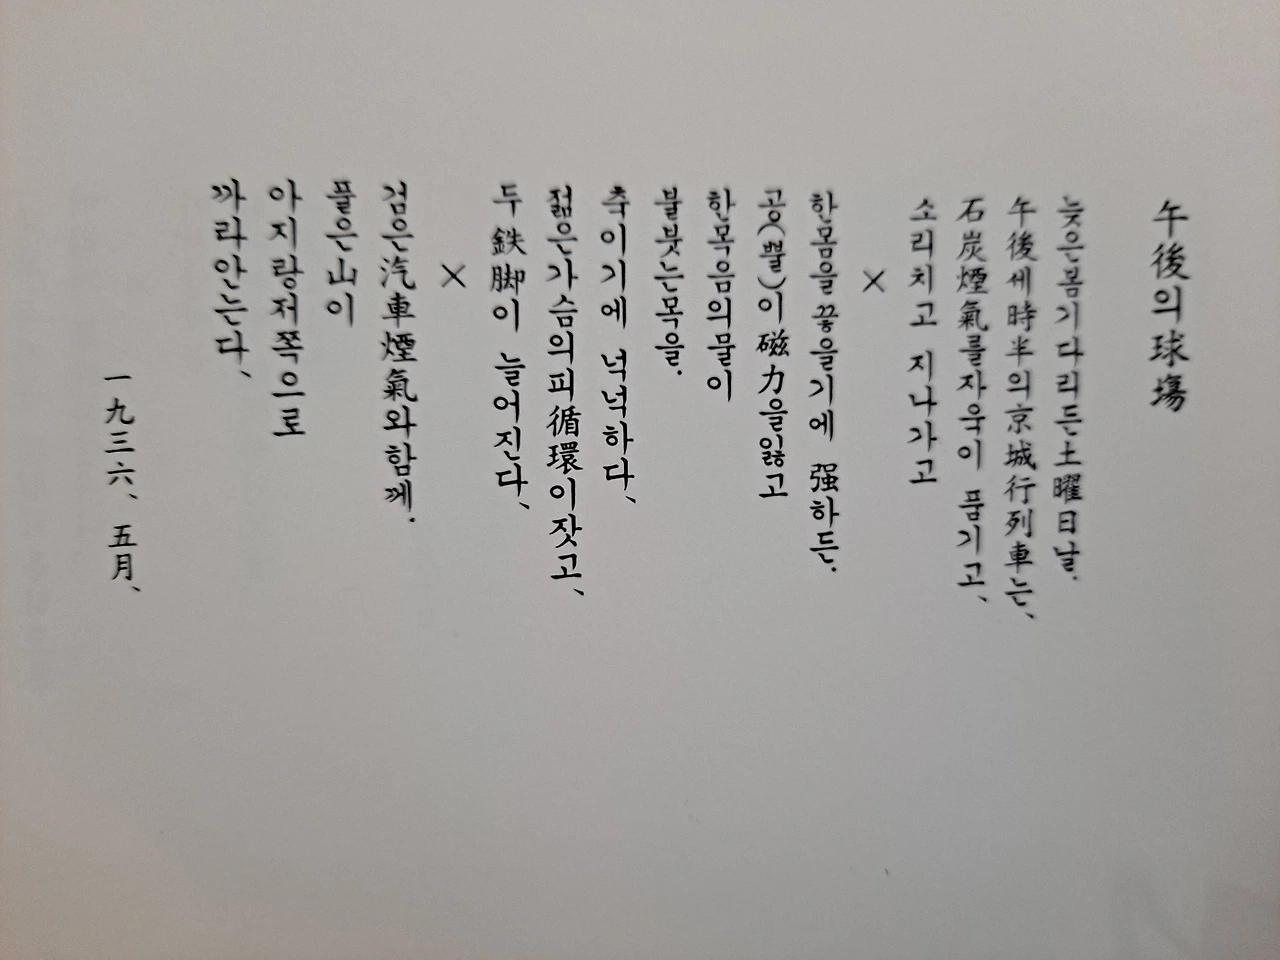 午後의球塲
늦은봄기다리든土曜日날.
午後세時半의京城行列車는、
石炭煙氣를자욱이 품기고、
소리치고 지나가고
×
한몸을끟을기에 强하든.
공(뽈)이磁力을잃고
한목음의물이
불붓는목을.
축이기에 넉넉하다、
젊은가슴의피循環이잣고、
두鉄脚이 늘어진다、
×
검은汽車煙氣와함께.
풀은山이
아지랑저쪽으로
까라안는다、
一九三六、五月、